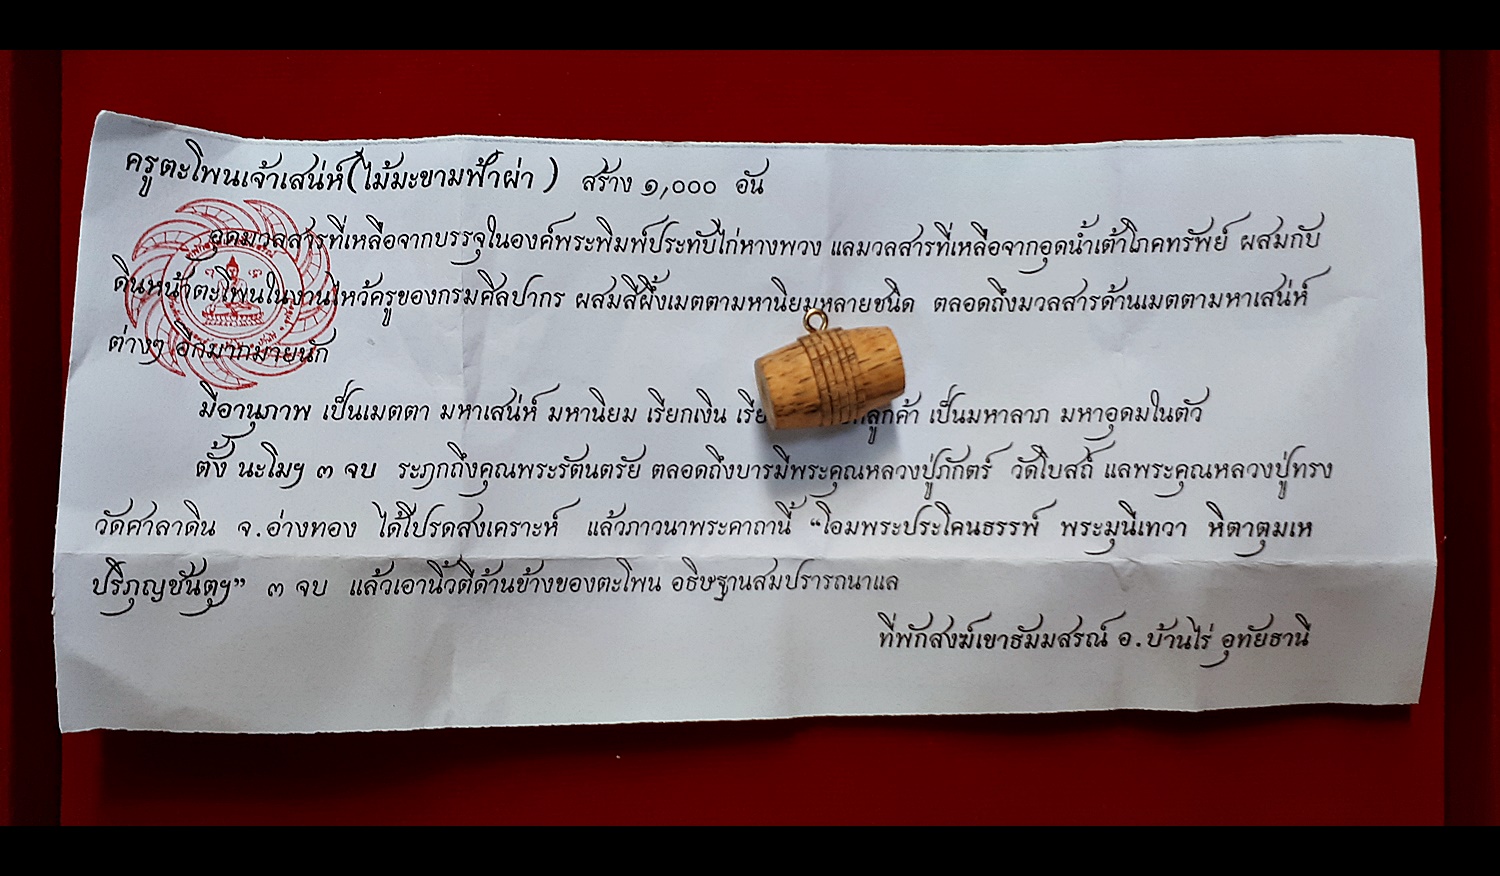 ครูตะโพนเจ้าเสน่ห์(ไม้มะขามฟ้าผ่า) สร้าง ๑,๐๐๐ อัน
อุดมวลสารที่เหลือจากบรรจุในองค์พระพิมพ์ประทับไก่หางพวง แลมวลสารที่เหลือจากอุดน้ำเต้าโภคทรัพย์ ผสมกับ
ดินหน้าตะโพนในงานไหว้ครูของกรมศิลปากร ผสมสีผึ้งเมตตามหานิยมหลายชนิด ตลอดถึงมวลสารด้านเมตตามหาเสน่ห์
ต่างๆ อีกมากมายนัก
มีอานุภาพ เป็นเมตตา มหาเสน่ห์ มหานิยม เรียกเงิน ลูกค้า เป็นมหาลาภ มหาอุดมในตัว
ตั้ง นะโมฯ ๓ จบ ระฦกถึงคุณพระรัตนตรัย ตลอดถึงบารมีพระคุณหลวงปู่ภักตร์ วัดโบสถ์ แลพระคุณหลวงปู่ทรง
วัดศาลาดิน จ.อ่างทอง ได้โปรดสงเคราะห์ แล้วภาวนาพระคาถานี้ “โอมพระประโคนธรรพ์ พระมุนีเทวา หิตาตุมเห
ปริภุญชันตุฯ” ๓ จบ แล้วเอานิ้วตีด้านข้างของตะโพน อธิษฐานสมปรารถนาแล
ที่พักสงฆ์เขาธัมมสรณ์ อ.บ้านไร่ อุทัยธานี